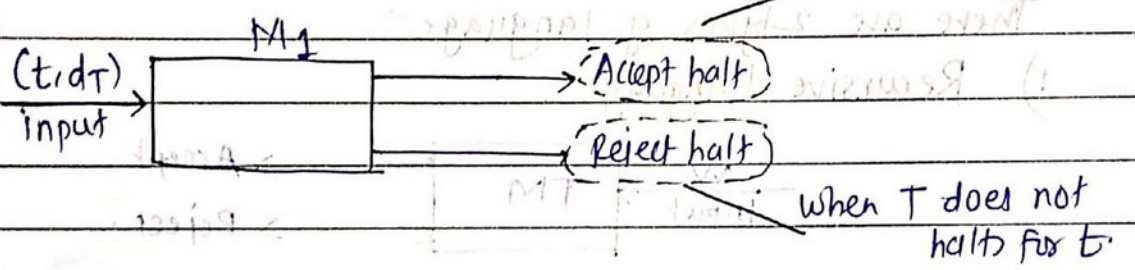 M1
(t, dT)
input
Accept halt
Reject halt
when T does not
halts for t.